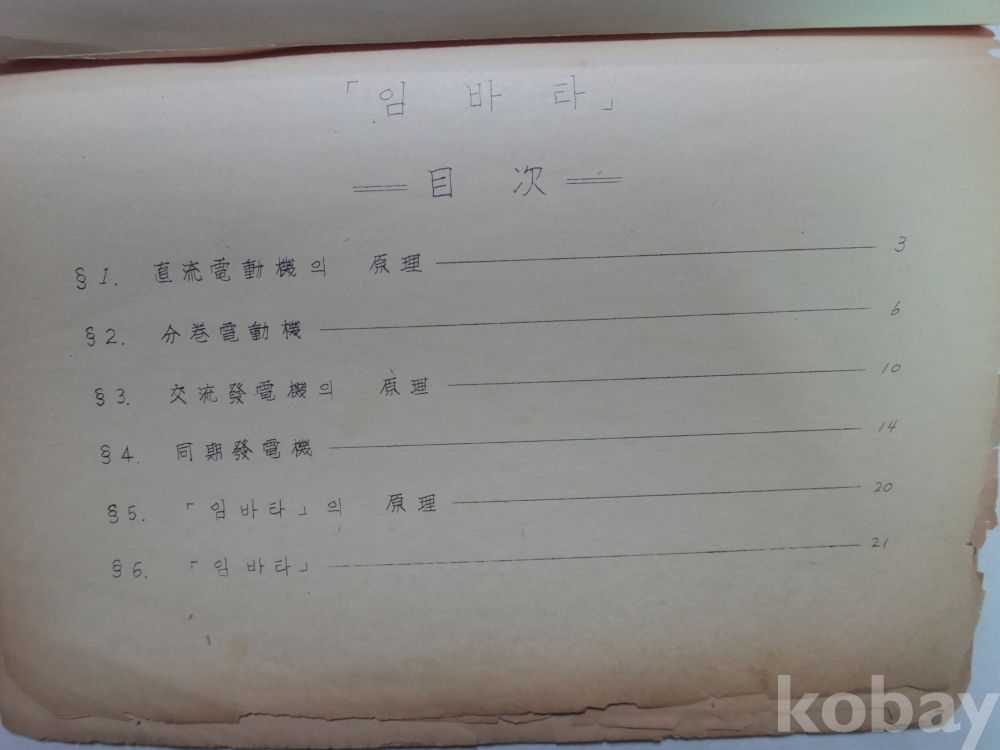 「임 바 타」
目 次
§1. 直流電動機의 原理 3
§2. 分巻電動機 6
§3. 交流發電機의 原理 10
§4. 同期發電機 14
§5. 「임바타」의 原理 20
§6. 「임바타」 21
kobay